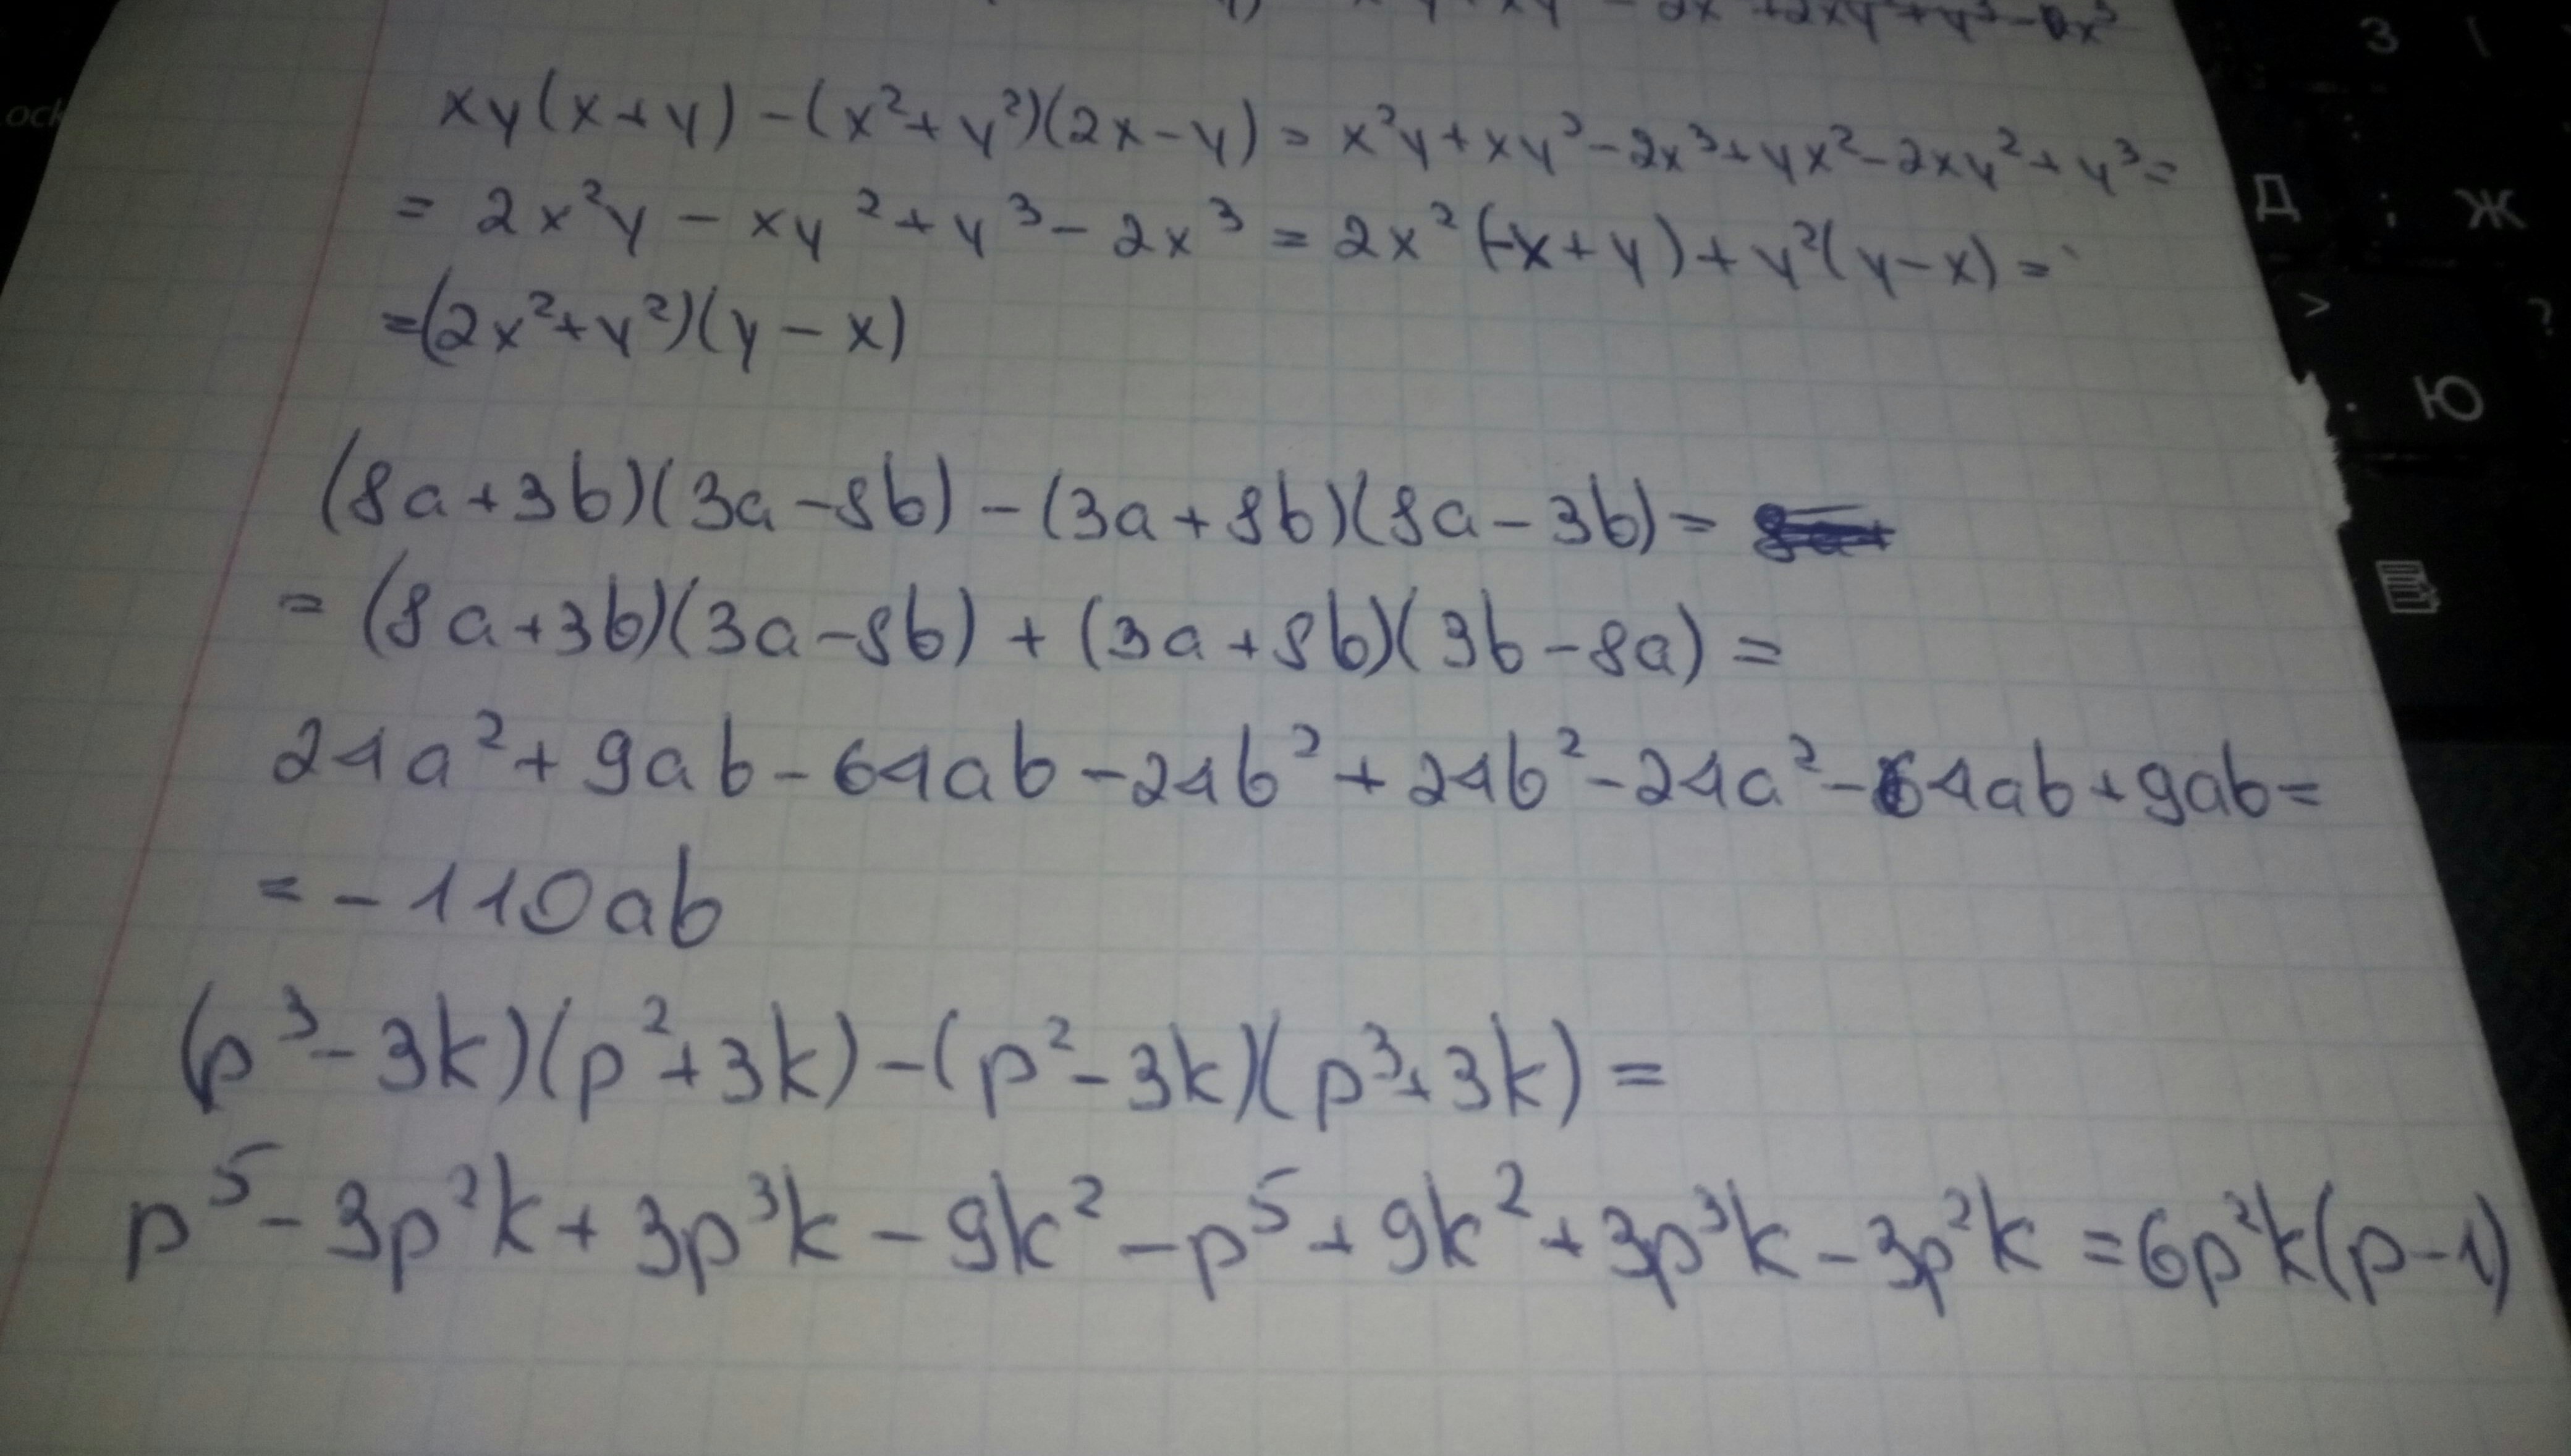 xy(x+y)-(x²+y²)(2x-y)= x²y+xy²-2x³+yx²-2xy²+y³=
= 2x²y - xy² + y³ - 2x³ = 2x²(-x+y)+y²(y-x)=
=(2x²+y²)(y-x)
(8a+3b)(3a-8b)-(3a+8b)(8a-3b)=
= (8a+3b)(3a-8b)+(3a+8b)(3b-8a)=
24a²+9ab-64ab-24b²+24b²-24a²-64ab+9ab=
= -110ab
(p³-3k)(p²+3k)-(p²-3k)(p³+3k)=
p⁵-3p²k+3p³k-9k²-p⁵+9k²+3p³k-3p²k=6p²k(p-1)
ock
З
Д ; Ж
> ?
. Ю